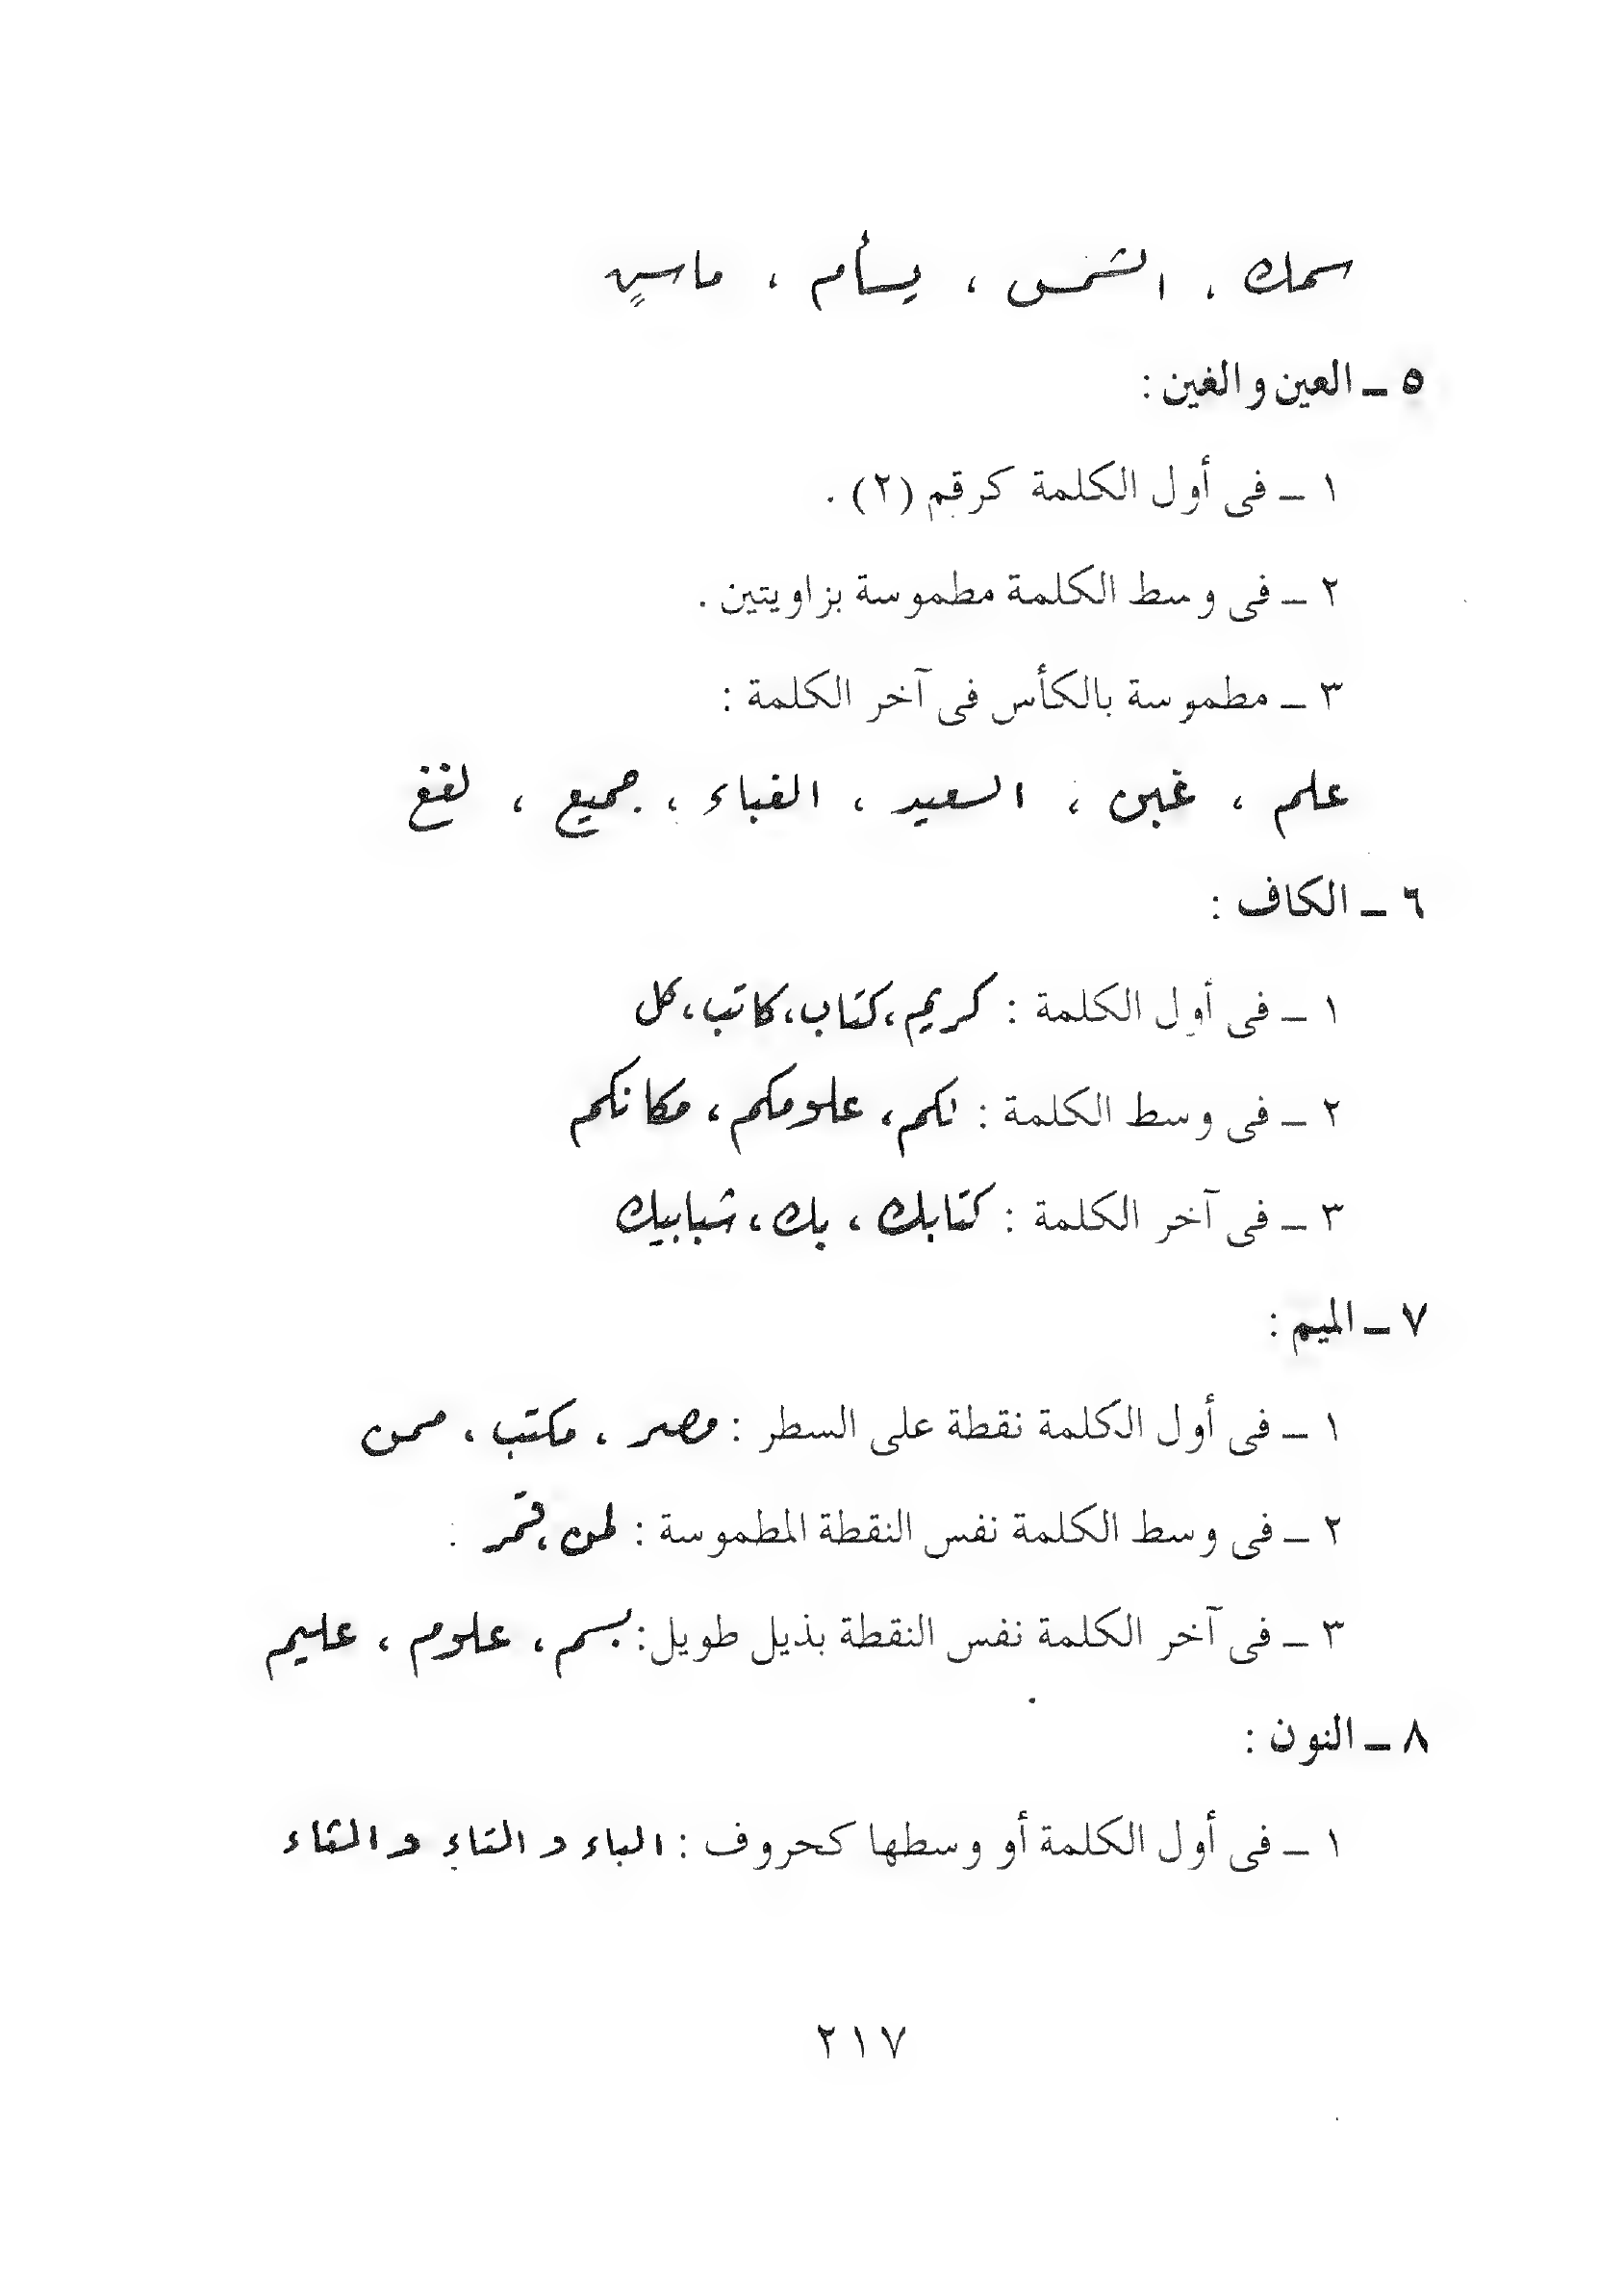 سمك ، الشمس ، يسأم ، ماسٍ
٥ ـ العين والغين :
١ ـ فى أول الكلمة كرقم (٢) .
٢ ـ فى وسط الكلمة مطموسة بزاويتين .
٣ ـ مطموسة بالكأس فى آخر الكلمة :
علم ، غبن ، السعيد ، الغباء ، جميع ،
٦ ـ الكاف :
١ ـ فى أول الكلمة : كريم ، كتاب ، كاتب ، كل
٢ ـ فى وسط الكلمة : لكم ، علومكم ، مكانكم
٣ ـ فى آخر الكلمة : كتابك ، بك ، شبابيك
٧ ـ الميم :
١ ـ فى أول الكلمة نقطة على السطر : مصر ، مكتب ، ممن
٢ ـ فى وسط الكلمة نفس النقطة المطموسة : لمن ، قمر .
٣ ـ فى آخر الكلمة نفس النقطة بذيل طويل : بسم ، علوم ، عليم
٨ ـ النون :
١ ـ فى أول الكلمة أو وسطها كحروف : الباء و التاء و الثاء
٢١٧